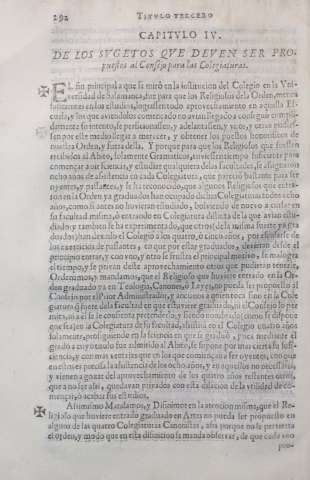 292 TITVLO TERCERO
CAPITVLO IV.
DE LOS SVGETOS QVE DEVEN SER PRO-
puestos al Consejo para las Colegiaturas.
EL fin principal a que se miró en la institucion del Colegio en la Vni-
versidad de Salamanca, fue para que los Religiosos de la Orden, 
 en los estudios, lograssen todo aprovechamiento en aquella Es-
cuela, y los que aviendolos començado no avian llegado a conseguir 
damente su intento, le perficionassen, y adelantassen, y 
 por este medio llegar a merecer, y obtener los puestos honorificos de
nuestra Orden, y fuera della. Y porque para que los Religiosos que fuessen
recibidos al Abito, solamente Gramaticos, tuviessen tiempo suficiente para
començar a oir ciencia, y estudiar qualquiera de las facultades, se assignaron
ocho años de assistencia en cada Colegiatura, que pareció bastante para ser
oyentes, y passantes, y se ha reconocido, que algunos Religiosos que entra-
ron en la Orden ya graduados han ocupado dichas Colegiaturas todos ocho
años, como si antes no huvieran estudiado, bolviendo de nuevo a cursar en
su facultad misma, ó entrando en Colegiatura distinta de la que avian estu-
diado: y tambien se ha experimentado, que otros 
 han dexado el Colegio a los quatro, ó cinco años, por 
los exercicios de passantes, en que por estar graduados, devieran desde el
principio entrar, y con vno, y otro se frustra el principal motivo, se malogra
el tiempo, y se privan deste aprovechamiento otros que pudieran tenerle,
Ordenamos, y mandamos, que el Religioso que huviere entrado en la Or-
den graduado ya en Teologia, Canones, ó Leyes, no pueda ser propuesto al
Consejo por el Prior Administrador, y ancianos a quien 
 de la facultad en que estuviere graduado, ni el Consejo lo per-
mita, ni a el se le consienta pretenderla, y siendo nombrado, como se dispone
que sea, en la Colegiatura de su facultad, assista en el Colegio quatro años
solamente, prosiguiendo en la sciencia en que se graduó, pues mediante el
grado a cuyo titulo fue admitido al Abito, se supone por mas cierta la sufi-
ciencia, y con mas ventajas que en los que comiençan a ser oyentes, con que
en estos es precisa la assistencia de los ocho años, y en aquellos no necessita,
y vienen a gozar del aprovechamiento de los quatro años restantes otros,
que a no ser assi, quedavan privados con esta dilacion de la vtilidad de co-
mençar, ó acabar sus estudios.
Assimismo Mandamos, y Difinimos en la atencion misma, que el Re-
ligioso que huviere entrado graduado en Artes no pueda ser propuesto en
alguna de las quatro Colegiaturas Canonistas, assi porque no se pervierta
el orden, y modo que en esta distincion se manda observar, de que cada vno
pro-